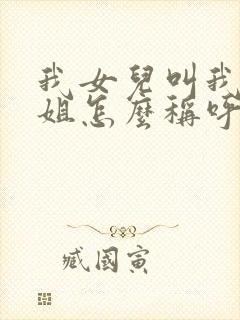 我女兒叫我
姐怎麼稱呼
臧國寅